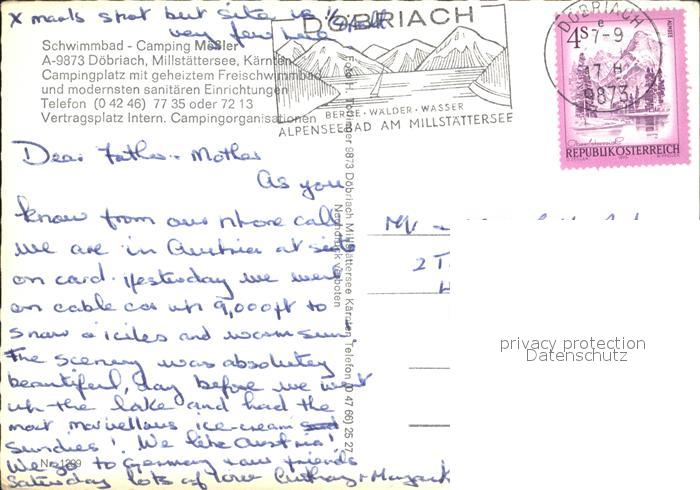 X marks spot but site is ½
very few here
Schwimmbad - Camping Mößler
A-9873 Döbriach, Millstättersee, Kärnten
Campingplatz mit geheiztem Freischwimmbad
und modernsten sanitären Einrichtungen
Telefon (0 42 46) 77 35 oder 72 13
Vertragsplatz Intern. Campingorganisationen
DÖBRIACH
BERGE · WÄLDER · WASSER
ALPENSEEBAD AM MILLSTÄTTERSEE
DÖBRIACH
e
7-9
9873
4S
ALMSEE
Oberösterreich
REPUBLIK ÖSTERREICH
Dear Father + Mother
As you
know from our phone call
we are in Austria at site
on card. Yesterday we went
on cable car up 9,000ft to
snow & icicles and warm sun.
The scenery was absolutey
beautiful, day before we went
up the lake and had the
most marvellous ice-cream
sundies! We like Austria!
We go to Germany + our friends
Saturday lots of love Anthony + Margaret
No 1299
9873 Döbriach Millstättersee Kärnten Telefon (0 47 66) 25 27
Nachdruck verboten
Mr
2 T
H
privacy protection
Datenschutz